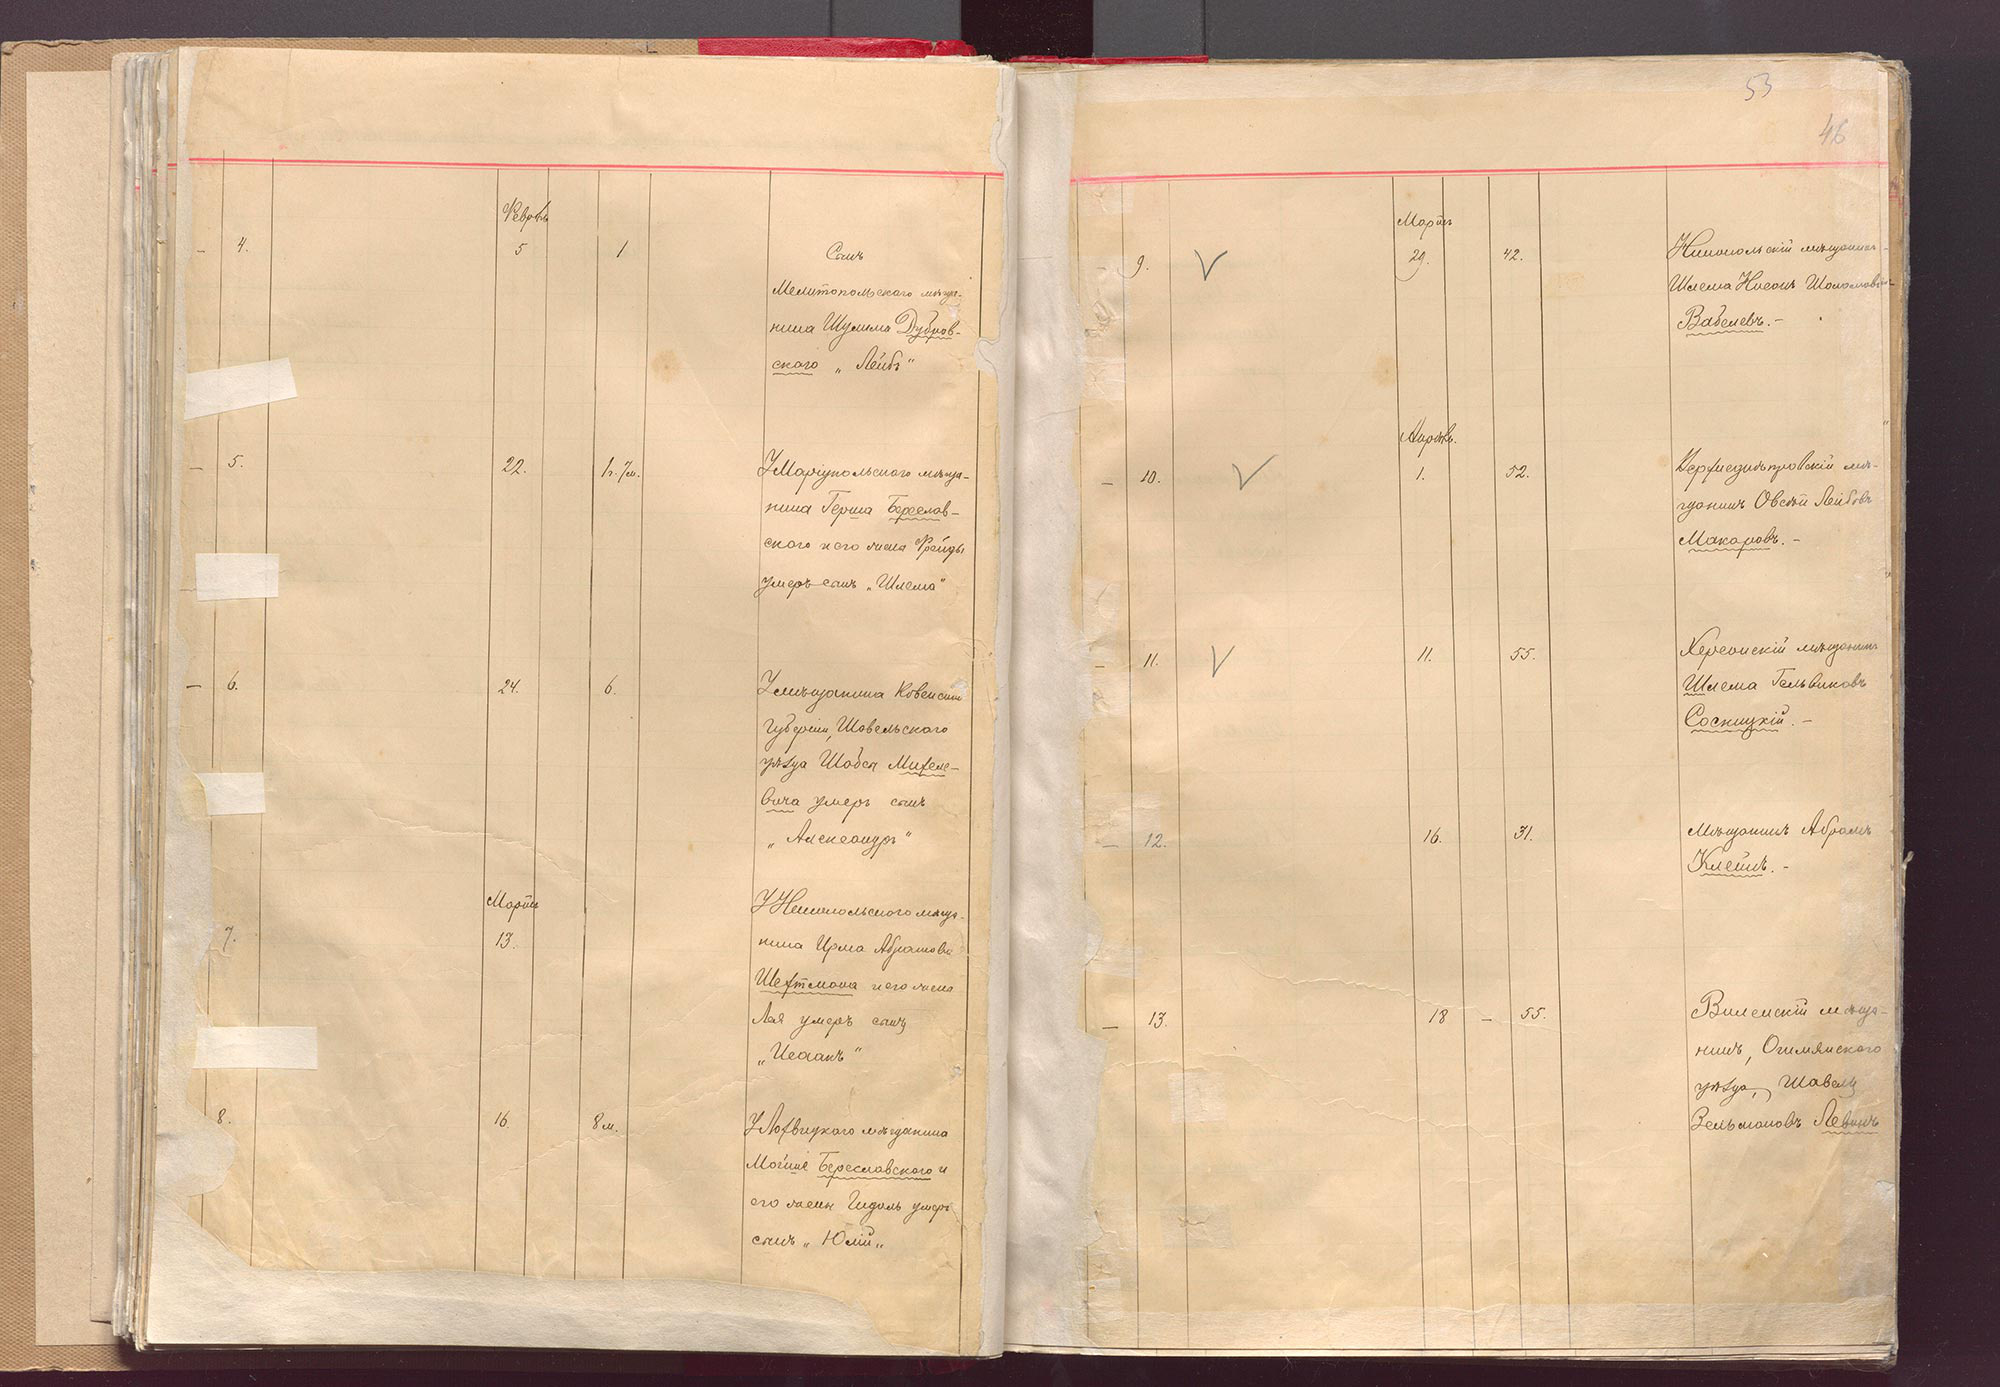 Февраль
4. 5 1 Сынъ
Мелитопольского мѣща-
нина Шулима Дубров-
ского „Лейбъ"
5. 22. 1г. 7м. У Маріупольского мѣща-
нина Герша Береслав-
ского и его жены Фрейды
умеръ сынъ „Шлема"
6. 24. 6. У мѣщанина Ковенской
губерніи, Шавельского
уѣзда Шабся Михеле-
вича умеръ сынъ
„Александръ"
Мартъ
7. 13. У Никопольского мѣща-
нина Абрамова
Шехтмана и его жены
Лея умеръ сынъ
„Исаакъ"
8. 16. 8 м. У Лохвицкого мѣщанина
Береславского и
его жены умеръ
сынъ „Юлій„
53
46
Мартъ
9. 29. 42. Никопольскій мѣщанинъ
Шлема Нисонъ Шоломовъ
Вабелевъ. -
Апрѣль.
10. 1. 52. Верхнеднѣпровскій мѣ-
щанинъ Овсѣй Лейбовъ
Макаровъ. -
11. 11. 55. Херсонскій мѣщанинъ
Шлема
Сосницкій. -
12. 16. 31. Мѣщанинъ Абрамъ
Клейнъ. -
13. 18 - 55. Виленскій мѣща-
нинъ, Ошмянского
уѣзда, Шавель
Зельмановъ Левинъ